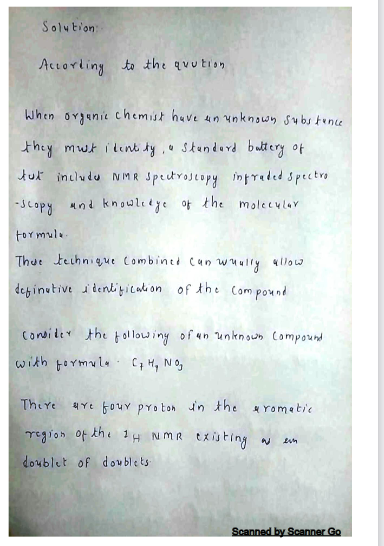 Solution:
According to the qvution
When organic chemist have an unknown substance
they must identity, a standard battery of
tut include NMR spectroscopy infraded spectro
-scopy and knowledge of the molecular
formula.
These technique combined can wually allow
definative identification of the compound
Consider the following of an unknown compound
with formula - C7 H9 NO3
There are four proton in the aromatic
region of the 1H NMR existing as an
doublet of doublets
Scanned by Scanner Go